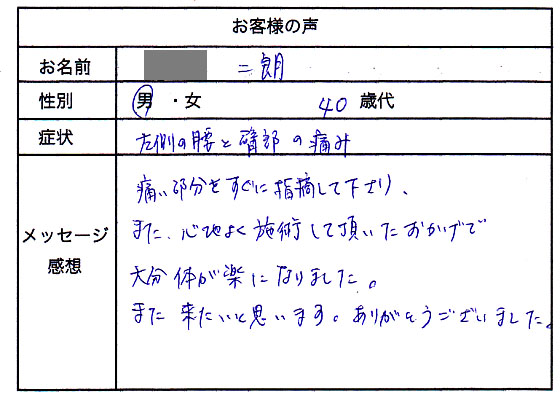 お客様の声
お名前 二朗
性別 男 ・女 40 歳代
症状 左側の腰と臀部の痛み
メッセージ
感想
痛い部分をすぐに指摘して下さり、
また、心地よく施術して頂いたおかげで
大分体が楽になりました。
また来たいと思います。ありがとうございました。